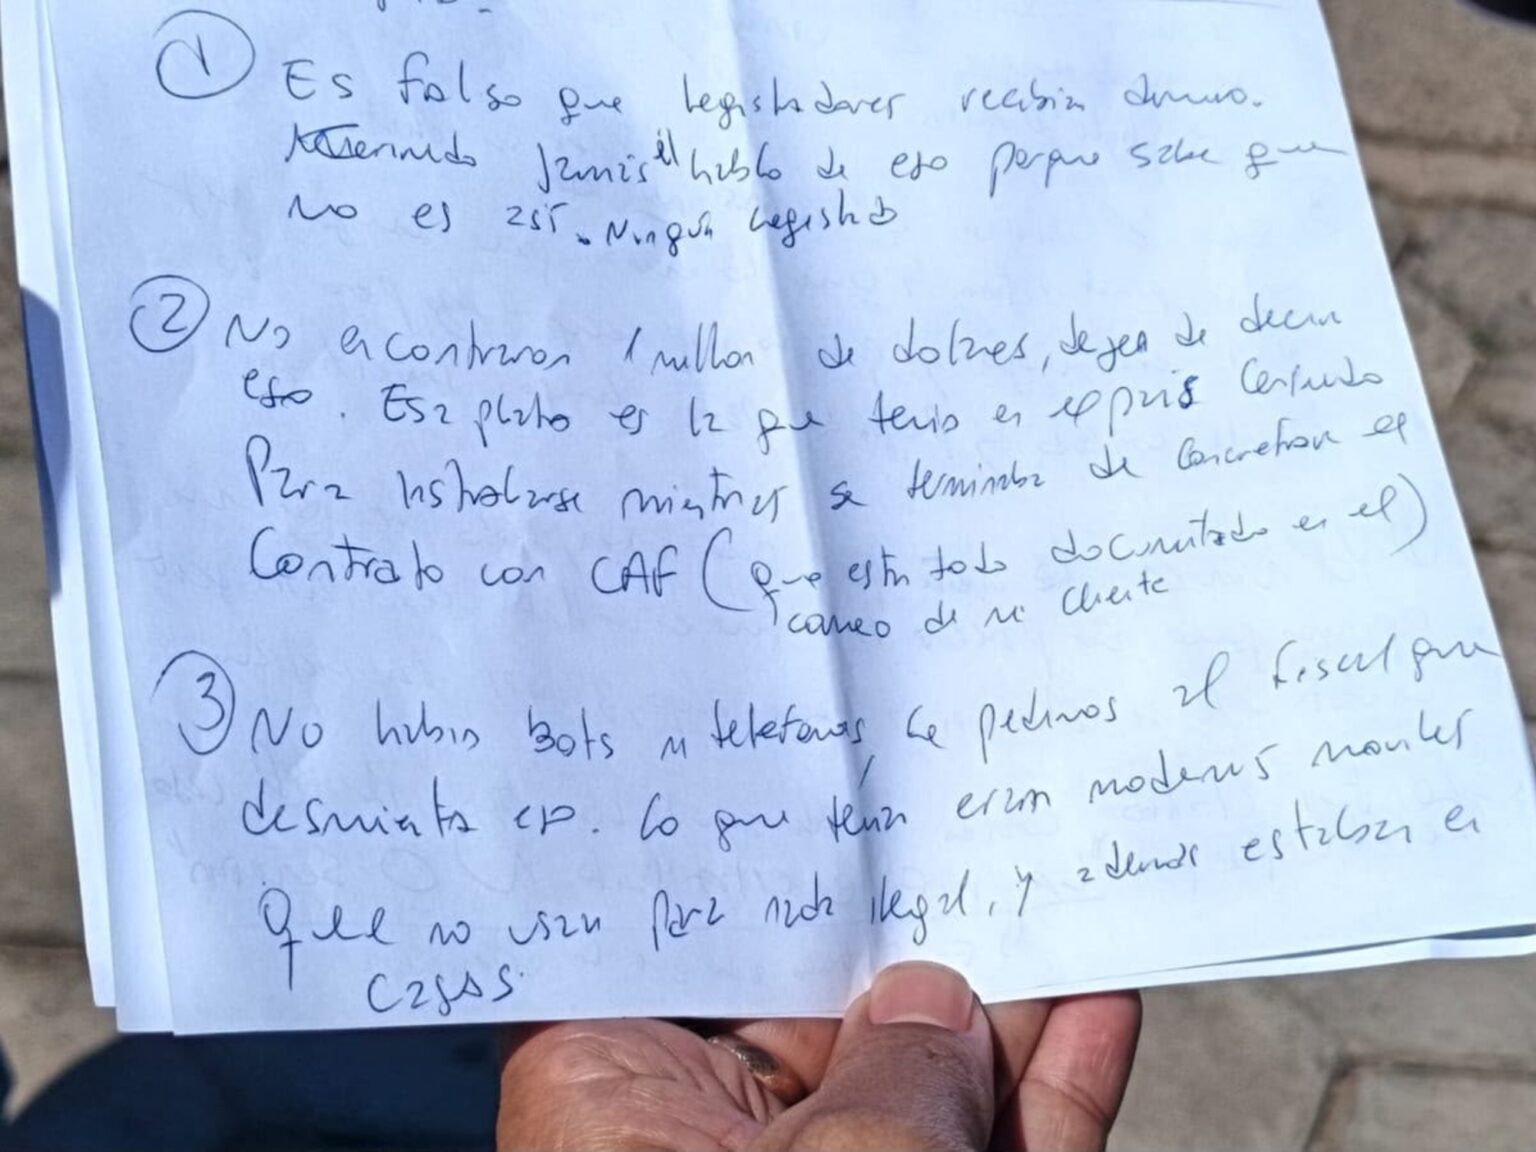 ① Es falso que legisladores recibían dinero.
jamás él habló de eso porque sabe que
no es así. Ningún legislad
② No encontraron 1 millon de dolares, dejen de decir
eso. Esa plata es la que tenia en el pais Cerimedo
Para instalarse mientras se terminaba de concretar el
Contrato con CAF (que esta todo documentado en el)
correo de mi cliente
③ No habia Bots ni telefonos, le pedimos al Fiscal que
desmienta eso. Lo que tenía eran modems moviles
que no usan para nada ilegal, y además estaban en
cajas.